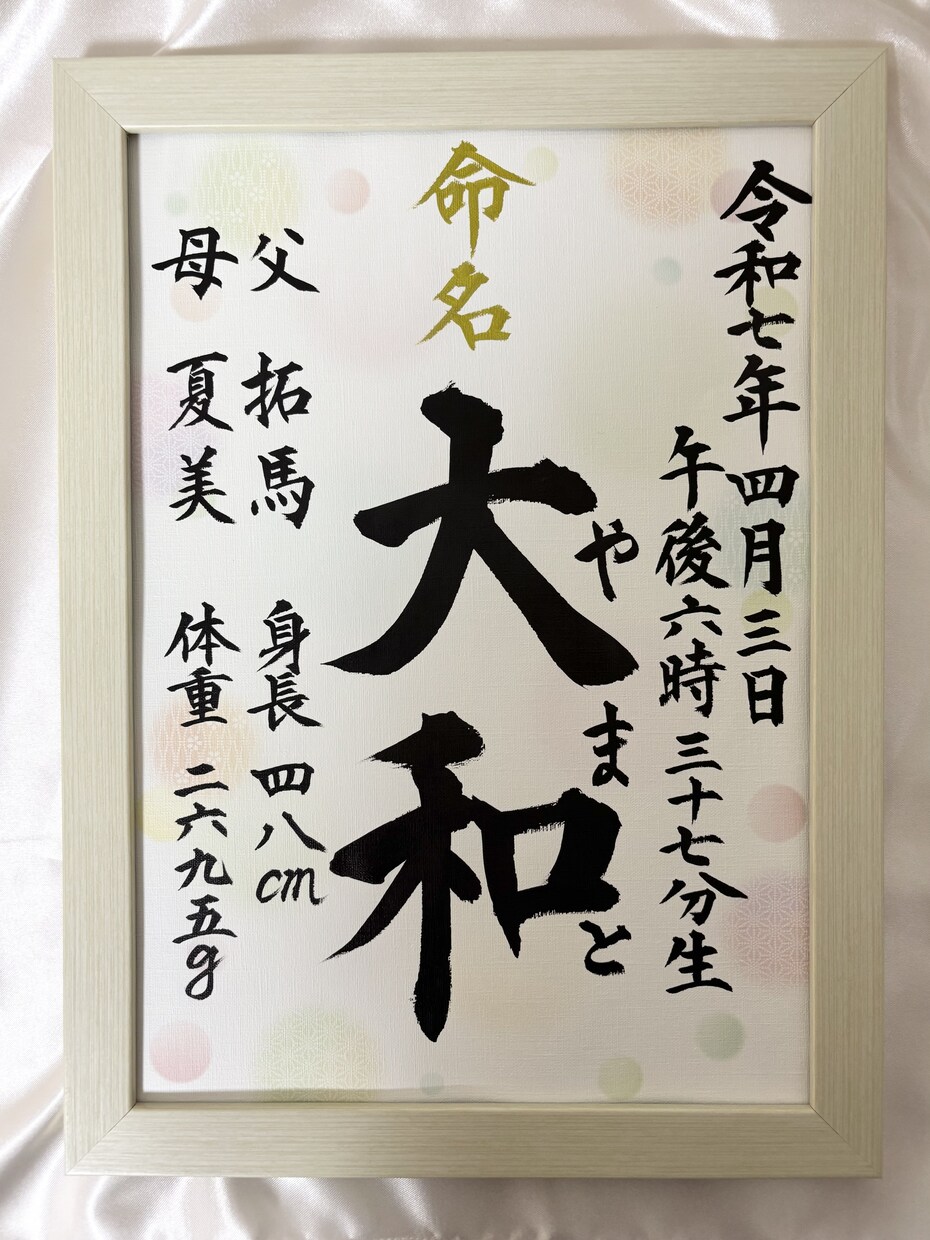 令和七年四月三日
午後六時三十七分生
命名
大和
やまと
父 拓馬
母 夏美
身長 四八cm
体重 二六九五g